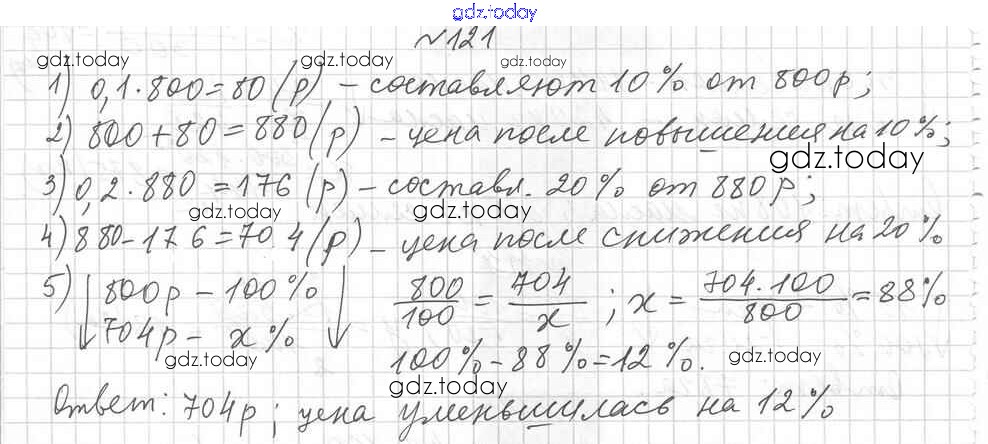 gdz.today
№121
gdz.today gdz.today gdz.today
1) 0,1·800=80 (р) – составляют 10% от 800р;
gdz.today
2) 800+80=880 (р) – цена после повышения на 10%;
gdz.today
3) 0,2·880=176 (р) – составл. 20% от 880р;
gdz.today gdz.today
4) 880–176=704 (р) – цена после снижения на 20%
5) 800р – 100% 800/100 = 704/x ; x = 704·100/800 = 88%
704р – x% 100% – 88% = 12%.
gdz.today gdz.today
gdz.today
Ответ: 704р; цена уменьшилась на 12%